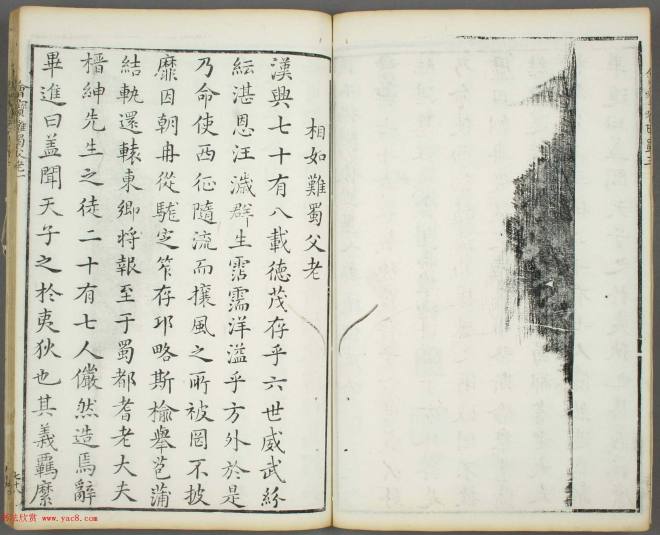 相如難蜀父老
漢興七十有八載德茂存乎六世威武紛
紜湛恩汪濊群生霑濡洋溢乎方外於是
乃命使西征隨流而攘風之所被罔不披
靡因朝冉從駹定筰存邛略斯榆舉苞蒲
結軌還轅東鄉將報至于蜀都耆老大夫
搢紳先生之徒二十有七人儼然造焉辭
畢進曰盖聞天子之於夷狄也其義羈縻
書法欣赏 www.yac8.com